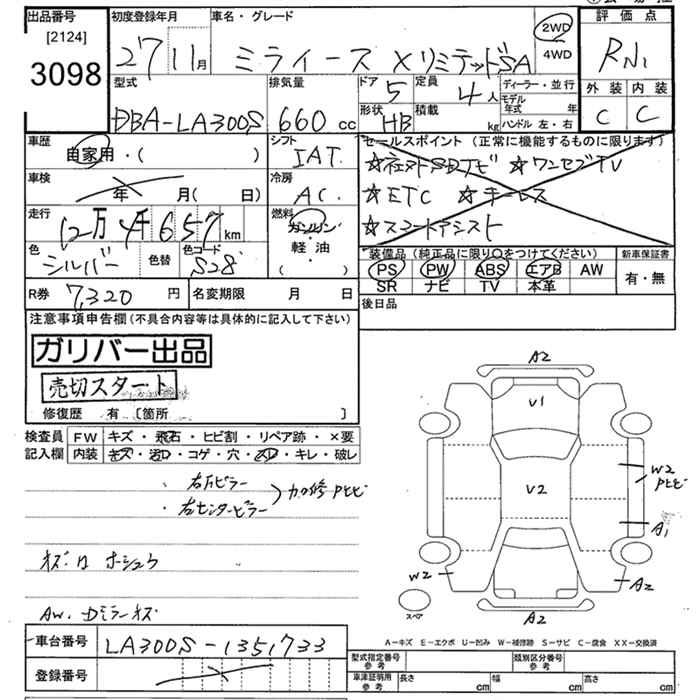 出品番号
[2124]
3098
初度登録年月
27 11月
車名・グレード
ミライース XリミテッドSA
2WD
4WD
評価点
RN1
外装 内装
C C
型式
DBA-LA300S
排気量
660 cc
ドア
5
定員
4人
形状
HB
積載
kg
ディーラー・並行
モデル年式 年
ハンドル 左・右
車歴
自家用・( )
シフト
IAT
セールスポイント (正常に機能するものに限ります)
☆ ワンセグTV
☆ETC ☆キーレス
☆スマートアシスト
車検
年 月( 日)
冷房
AC
走行
12万4千657km
燃料
ガソリン
軽・油
( )
色
シルバー
色替
色コード
S28
装備品 (純正品に限り〇をつけてください)
PS PW ABS エアB AW
SR ナビ TV 本革
新車保証書
有・無
R券 7,320円
名変期限 月 日
後日品
注意事項申告欄 (不具合内容等は具体的に記入して下さい)
ガリバー出品
売切スタート
修復歴 有 〔箇所 〕
検査員記入欄
FW キズ・飛石・ヒビ割・リペア跡・×要
内装 キズ・汚れ・コゲ・穴・スレ・キレ・破レ
・右Fピラー
・右センターピラー
カロ修
オズロ ホシュウ
AW. Dミラーキズ
車台番号 LA300S-1351733
登録番号
A2
V1
V2
W2
A1
W2
A2
スペア
A2
A-キズ E-エクボ U-凹み W-補修跡 S-サビ C-腐食 XX-交換済
型式指定番号 参考
類別区分番号 参考
車庫証明用 参考
長さ cm
幅 cm
高さ cm